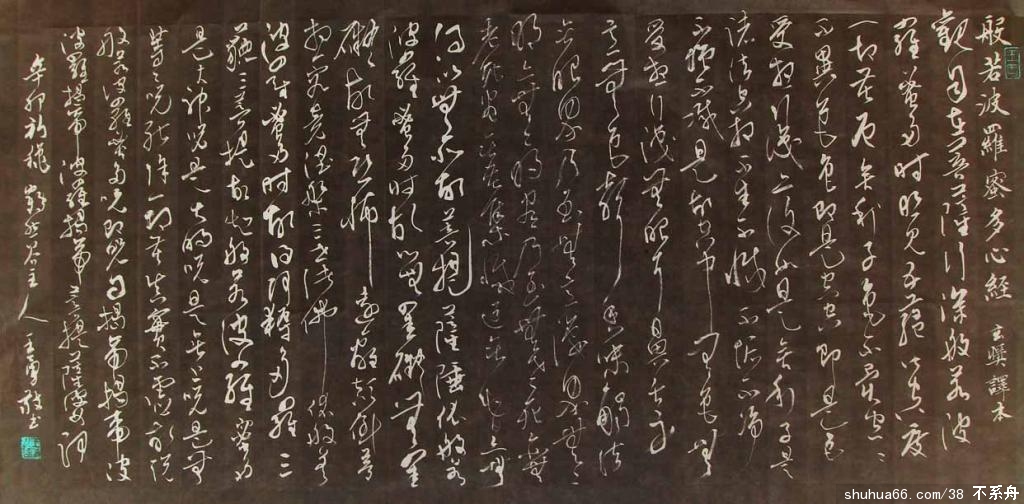 般若波羅蜜多心經 玄奘譯本
觀自在菩薩行深般若波
羅蜜多時照見五蘊皆空度
一切苦厄舍利子色不異空空
不異色色即是空空即是色
受想行識亦復如是舍利子是
諸法空相不生不滅不垢不淨
不增不減是故空中無色無
受想行識無眼耳鼻舌身
意無色聲香味觸法
無眼界乃至無意識界無無
明亦無無明盡乃至無老死亦無
老死盡無苦集滅道無智亦無
得以無所得故菩提薩埵依般若
波羅蜜多時故心無罣礙無罣
礙故無恐怖遠離顛倒夢
想究竟涅槃三世諸佛依般若
波羅蜜多時故得阿耨多羅三
藐三菩提故知般若波羅蜜多
是大神咒是大明咒是無上咒是無
等等咒能除一切苦真實不虛故說
般若波羅蜜多咒即說咒曰揭帝揭帝波
波羅揭帝波羅揭帝菩提薩婆訶
辛卯初秋 主人
shuhua66.com/38 不系舟